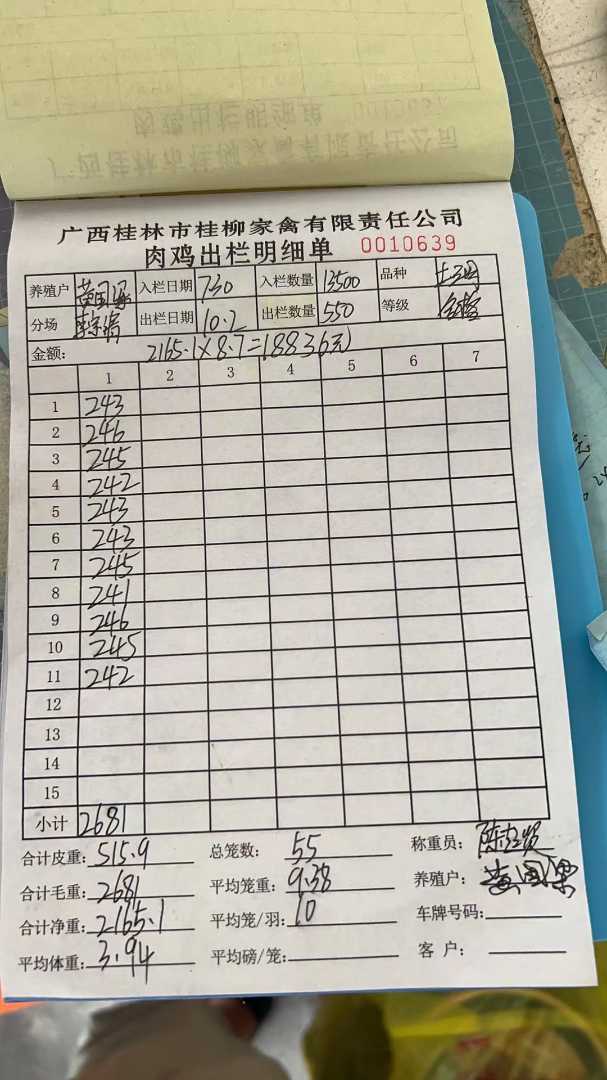 广西桂林市桂柳家禽有限责任公司
肉鸡出栏明细单 0010639
养殖户 黄国梁 入栏日期 7.30 入栏数量 13500 品种
分场 出栏日期 10.2 出栏数量 550 等级
金额: 2165.1×8.7=18836元
1 2 3 4 5 6 7
1 243
2 246
3 245
4 242
5 243
6 243
7 245
8 241
9 246
10 245
11 242
12
13
14
15
小计 2681
合计皮重: 515.9 总笼数: 55 称重员:
合计毛重: 2681 平均笼重: 9.38 养殖户: 黄国梁
合计净重: 2165.1 平均笼/羽: 10 车牌号码:
平均体重: 3.94 平均磅/笼: 客户: